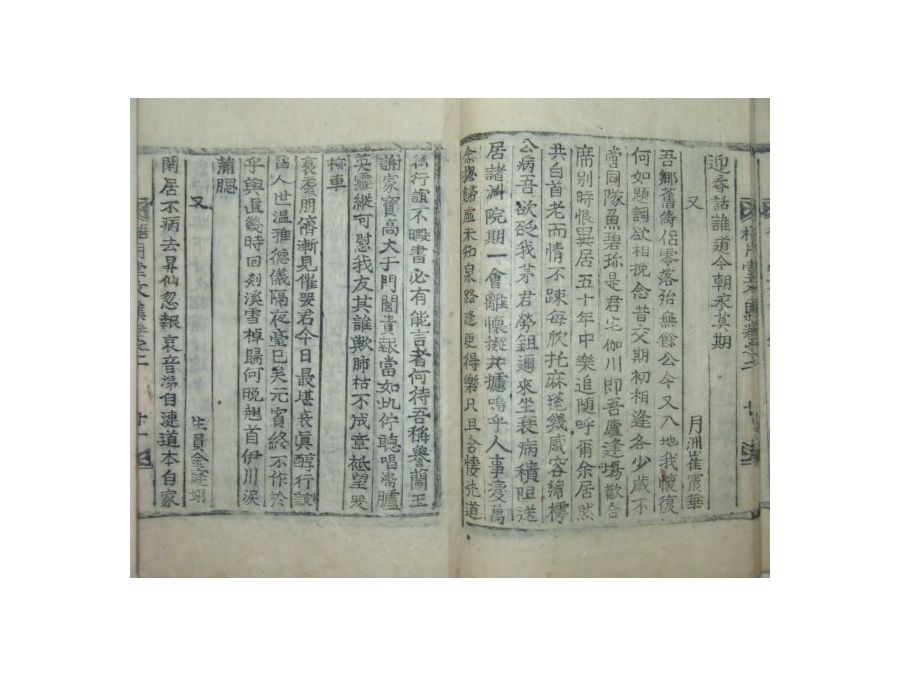 迎香話誰道今朝永莫期
又 月洲崔震華
吾鄉舊儔侶零落殆無餘公今又入地我懷復
何如題詞欲相挽念昔交期初相逢各少歲不
啻同隊魚碧珎是君宅伽川即吾廬逢場歡合
席別時恨異居五十年中樂追隨呼爾余居然
共白首老而情不踈每欣托麻蓬幾感容締樗
公病吾欲砭我茅君勞鋤邇來坐衰病積阻送
居諸洲院期一會離懷擬共攄嗚乎人事憂萬
念歸虛未知泉路逢更得樂只且含悽先道
後行誼不暇書必有能言者何待吾稱譽蘭玉
謝家寶高大于門閭責報當如此佇聽唱鴻臚
英靈縱可慰我友其誰歟肺枯不成章秪望哭
柩車
衰耋朋儕漸見催哭君今日最堪哀眞醇行誼
人世溫雅德儀隔夜臺已矣元賓終不作於
乎興眞幾時回剡溪雪棹歸何晩翹首伊川淚
滿腮
又 生員金建
閑居不病去昇仙忽報哀音淂自漣道本自家
堂文集卷之二 十一